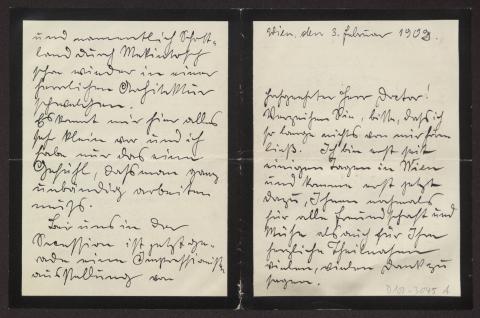 Wien, den 3. Februar 1903.
Hochgeehrter Herr Doctor!
Verzeihen Sie, bitte, dass ich
so lange nichts von mir hören
ließ. Ich bin erst seit
einigen Tagen in Wien
und komme erst jetzt
dazu, Ihnen nochmals
für alle Freundschaft und
Mühe als auch für Ihre
herzliche Theilnahme
vielen, vielen Dank zu
sagen.
und namentlich Schott-
land durch Mackintosh
schon wieder in einer
herrlichen Architektur
schwelgen.
Es kommt mir hier alles
sehr klein vor und ich
habe nur das eine
Gefühl, dass man ganz
unbändig arbeiten
muss.
Bei uns in der
Secession ist jetzt ge-
rade eine Impressionist-
ausstellung von